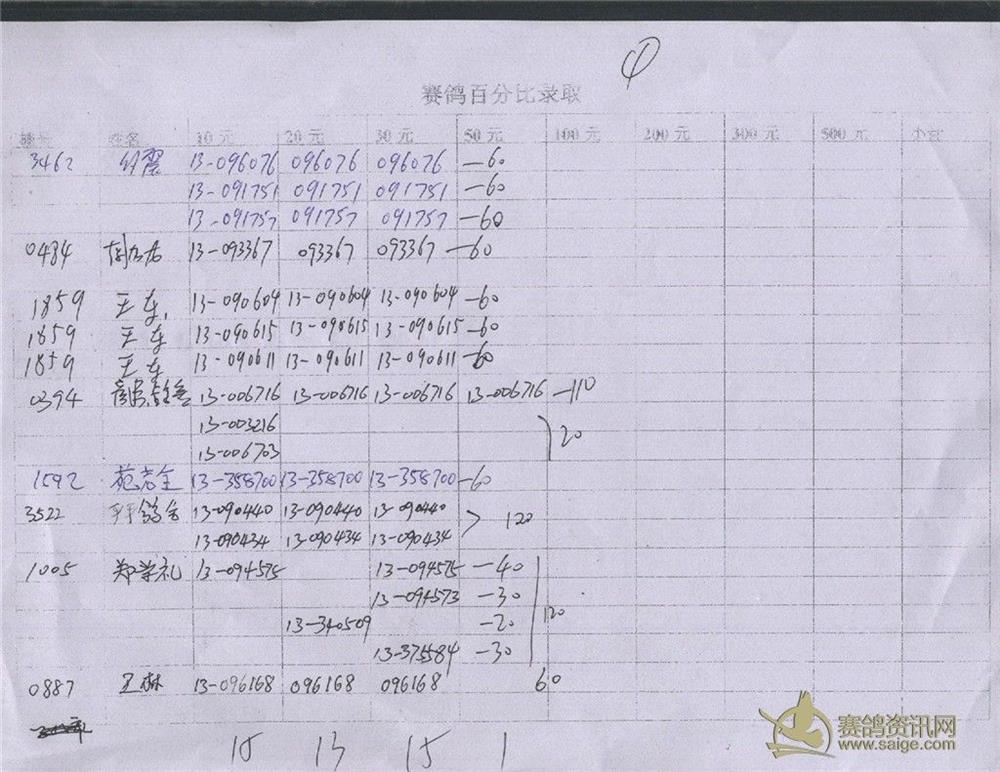 ①
赛鸽百分比录取
棚号 姓名 10元 20元 30元 50元 100元 200元 300元 500元 小计
3462 13-096076 096076 096076 -60
13-091751 091751 091751 -60
13-091757 091757 091757 -60
0484 13-093367 093367 093367 -60
1859 王车 13-090604 13-090604 13-090604 -60
1859 王车 13-090615 13-090615 13-090615 -60
1859 王车 13-090611 13-090611 13-090611 -60
0394 13-006716 13-006716 13-006716 13-006716 -110
13-003216 20
13-006703
1592 范志全 13-358700 13-358700 13-358700 -60
3522 鸽舍 13-090440 13-090440 13-090440 120
13-090434 13-090434 13-090434
1005 郑学礼 13-094575 13-094575 -40
13-094573 -30 120
13-340509 -20
13-375584 -30
0887 王林 13-096168 096168 096168 60
15 13 15 1
赛鸽资讯网
www.saige.com